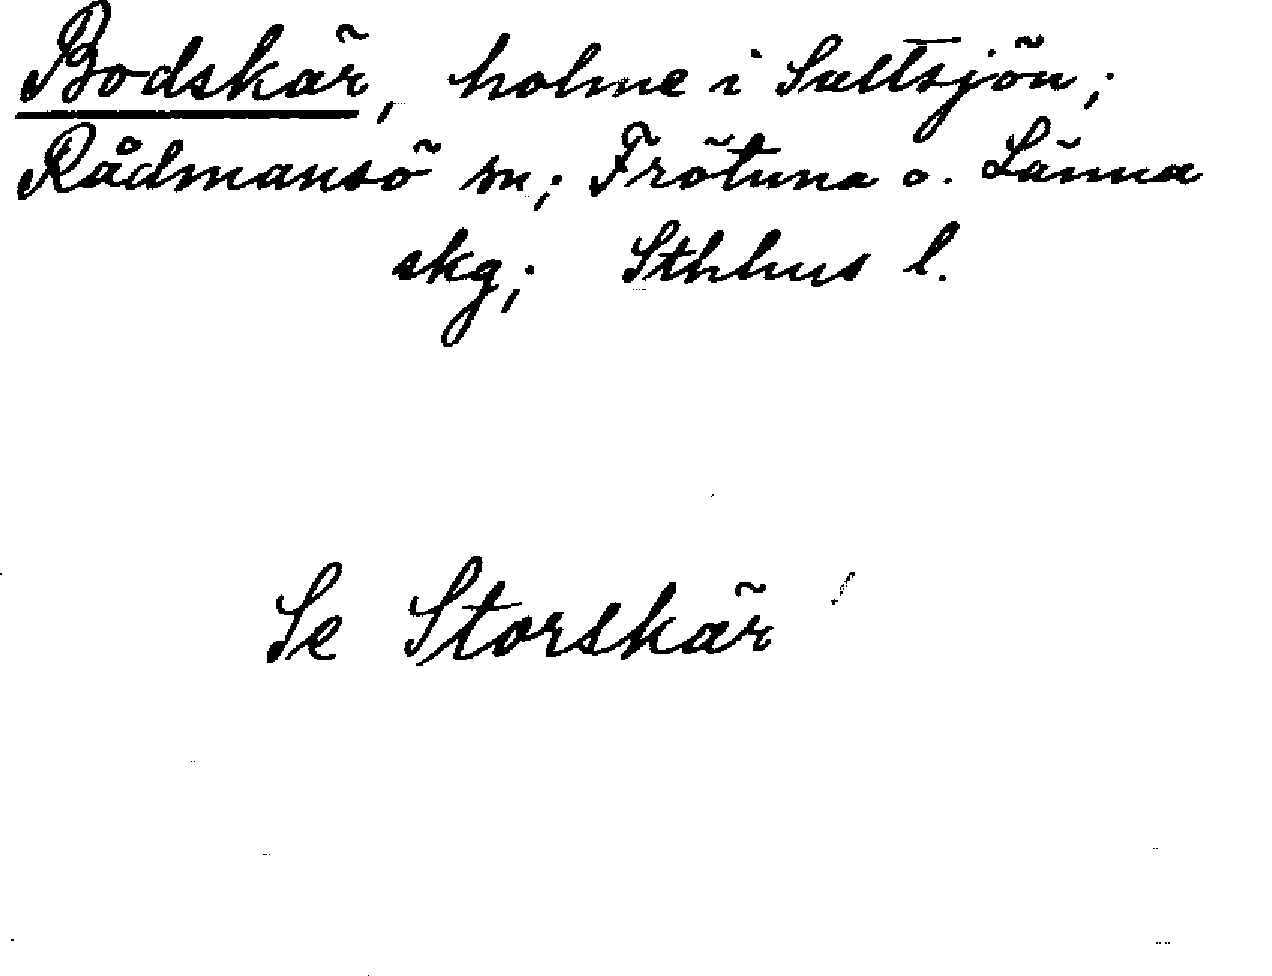 Bodskär, holme i Saltsjön;
Rådmansö sn; Frötuna o. Länna
skg; Sthlms l.
Se Storskär